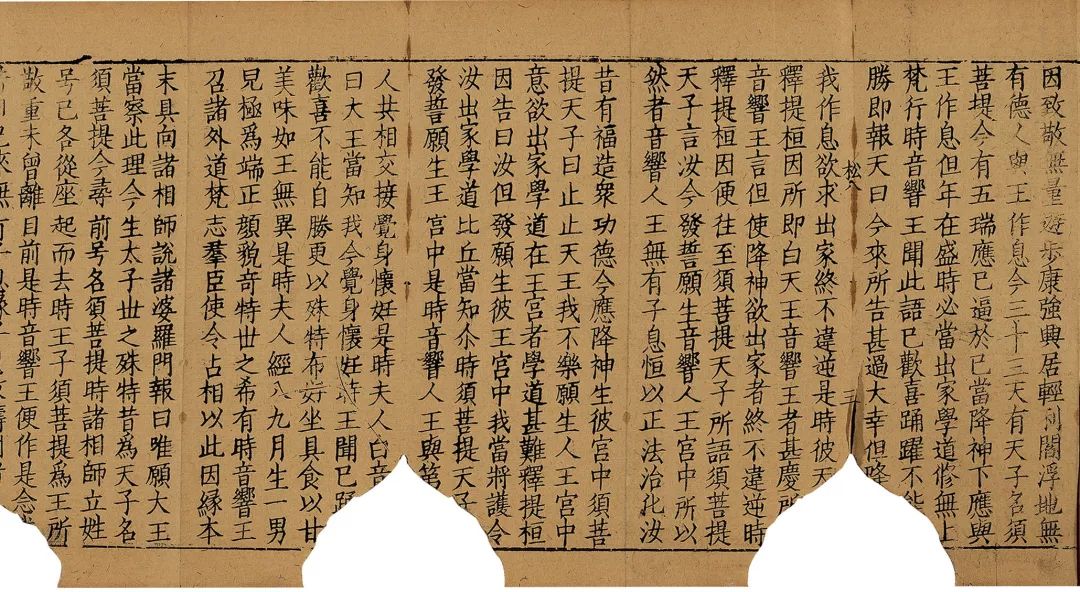 因致敬無量遊步康強興居輕利閻浮地無
有德人與王作息今三十三天有天子名須
菩提今有五瑞應已逼於已當降神下應與
王作息但年在盛時必當出家學道修無上
梵行時音響王聞此語已歡喜踊躍不能
勝即報天曰今來所告甚過大幸但降
松 三
我作息欲求出家終不違逆是時彼天
釋提桓因所即白天王音響王者甚慶所
音響王言但使降神欲出家者終不違逆時
釋提桓因便往至須菩提天子所語須菩提
天子言汝今發誓願生音響人王宮中所以
然者音響人王無有子息恒以正法治化汝
昔有福造衆功德今應降神生彼宮中須菩
提天子曰止止天王我不樂願生人王宮中
意欲出家學道在王宮者學道甚難釋提桓
因告曰汝但發願生彼王宮中我當將護令
汝出家學道比丘當知尒時須菩提天子
發誓願生王宮中是時音響人王與第
人共相交接覺身懷妊是時夫人白音
曰大王當知我今覺身懷妊時王聞已踊
歡喜不能自勝更以殊特布好坐具食以甘
美味如王無異是時夫人經八九月生一男
兒極爲端正顏貌奇特世之希有時音響王
召諸外道梵志羣臣使令占相以此因緣本
末具向諸相師說諸婆羅門報曰唯願大王
當察此理今生太子世之殊特昔爲天子名
須菩提今尋前号名須菩提時諸相師立姓
号已各從座起而去時王子須菩提爲王所
敬重未曾離目前是時音響王便作是念